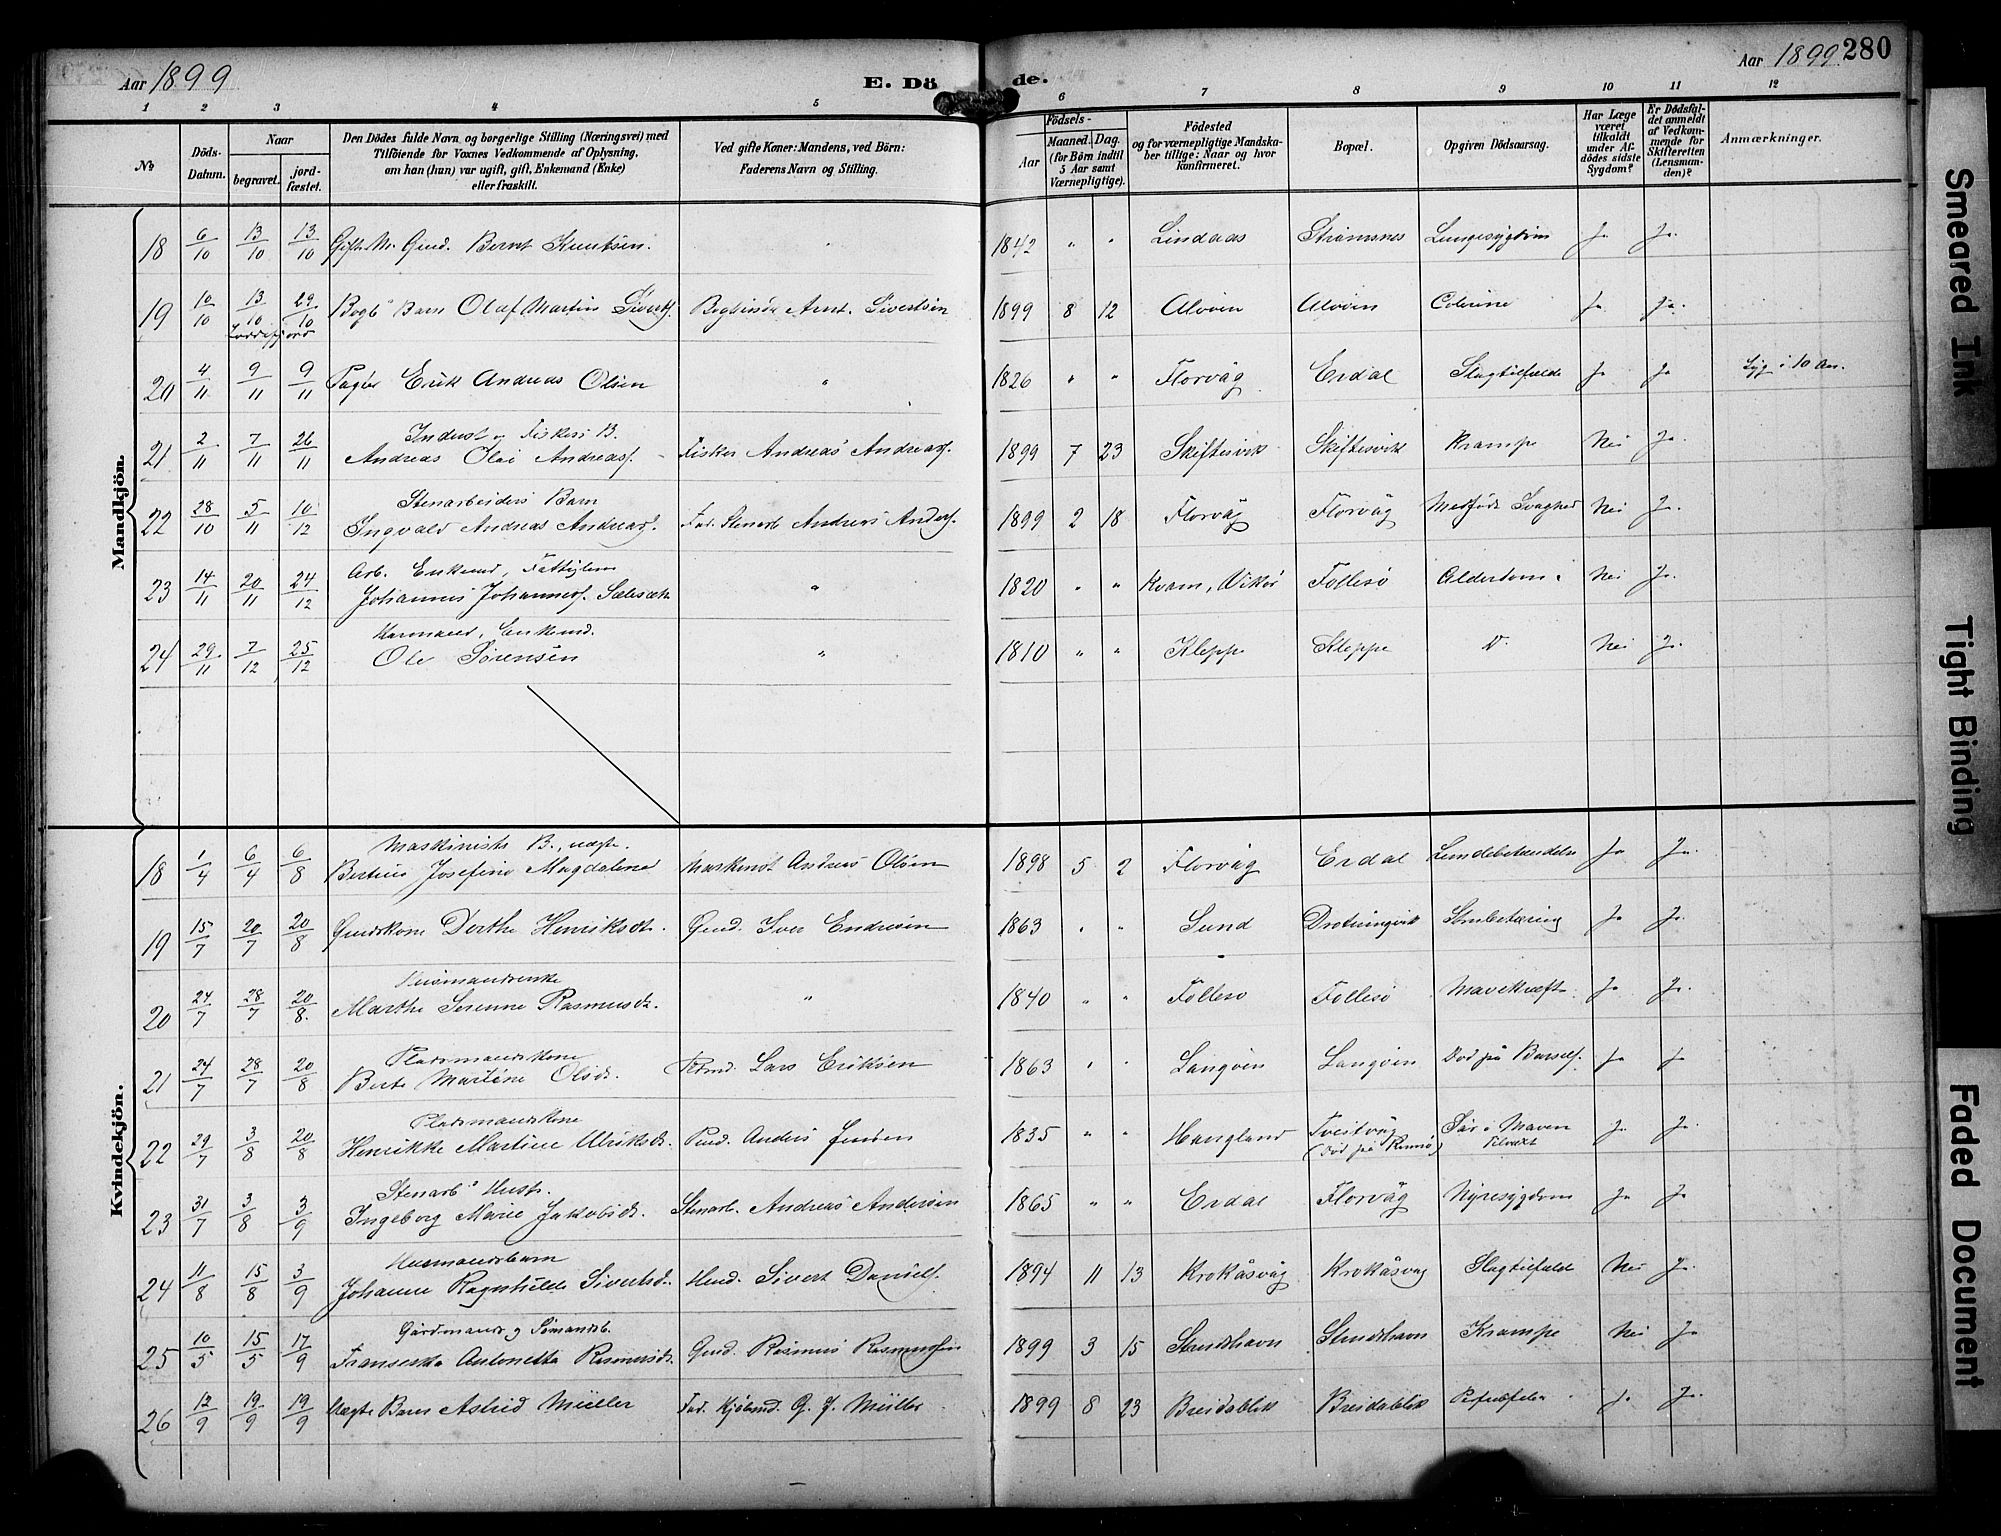 Aar 1899
E. Dö de.
Aar 1899 280
1 2 3 4 5 6 7 8 9 10 11 12
No
Döds-Datum.
Naar
begravet.
jord-fæstet.
Den Dödes fulde Navn og borgerlige Stilling (Næringsvei) med
Tilföiende for Voxnes Vedkommende af Oplysning,
om han (hun) var ugift, gift, Enkemand (Enke)
eller fraskilt.
Ved gifte Koner: Mandens, ved Börn:
Faderens Navn og Stilling.
Födsels-
Aar
Maaned. Dag.
(for Börn indtil
5 Aar samt
Værnepligtige).
Födested
og for værnepligtige Mandska-
ber tillige: Naar og hvor
konfirmeret.
Bopæl.
Opgiven Dödsaarsag.
Har Læge
været
tilkaldt
under Af-
dödes sidste
Sygdom?
Er Dödsfal-
det anmeldt
af Vedkom-
mende for
Skifteretten
(Lensman-
den)?
Anmærkninger.
Mandkjön.
18 6/10 13/10 13/10 Gift M. Gmd. Bernt Knutsen. " 1842 " " Lindaas Strømsnes Lungesygdom Ja Ja.
19 10/10 13/10 29/10 Bogb Barn Olaf Martin Siverts. Arnt. Sivertsen 1899 8 12 Alvøen Alvøen Colerine Ja Ja.
20 4/11 9/11 9/11 Erik Andreas Olsen " 1826 " " Florvåg Erdal Slagtilfælde Ja Ja Syg i 10 Aar.
21 2/11 7/11 26/11 Inderst og Fiskers B.
Andreas Olai Andreass. Fisker Andreas Andreass. 1899 7 23 Skiftesvik Skiftesvik Krampe Nei Ja.
22 28/10 5/11 10/12 Stenarbeiders Barn
Ingvald Andreas Andreass. Fad. Stenarb Andreas Anders. 1899 2 18 Florvåg Florvåg Medfødt Svaghed Nei Ja.
23 14/11 20/11 24/12 Arb. Enkemd, Fattiglem
Johannes Johanness. " 1820 " " Kvam, Vikør Follesø Alderdom Nei Ja.
24 29/11 7/12 25/12 Kaarmand, Enkemd.
Ole Sørensen " 1810 " " Kleppe Kleppe D. Nei Ja.
Kvindekjön.
18 1/4 6/4 6/8 Maskinists B., uægte.
Josefine Magdalene Maskinist Andreas Olsen 1898 5 2 Florvåg Erdal Lungebetændelse Ja Ja.
19 15/7 20/7 20/8 Gmdskone Dorthe Henriksdt. Gmd. Iver Endresen 1863 " " Sund Drotningvik Ja Ja.
20 24/7 28/7 20/8 Husmandsenke
Marthe Serenne Rasmusdt. " 1840 " " Follesø Follesø Mavekræft Ja Ja.
21 24/7 28/7 20/8 Pladsmandskone
Berte Martine Olsdt. Plmd. Lars Eriksen 1863 " " Langøen Langøen Død på Barsels. Ja Ja
22 29/7 3/8 20/8 Pladsmandskone
Henrikke Martine Ulriksdt. Pmd. Anders Jensen 1835 " " Haugland Tveitvåg Sår i Maven Ja Ja.
23 31/7 3/8 3/9 Stenarbs Hustr.
Ingeborg Marie Jakobsdt. Stenarb. Andreas Andersen 1865 " " Erdal Florvåg Nyresygdom Ja Ja
24 11/8 15/8 3/9 Husmandsbarn
Johanne Ragnhilde Sivertsdt. Hmd. Sivert Daniels. 1894 11 13 Krokåsvåg Krokåsvåg Slagtilfæld Nei Ja.
25 10/5 15/5 17/9 Gårdmands og Sømandsb.
Franseska Antonetta Rasmusdt. Gmd. Rasmus Rasmussen 1899 3 15 Strudshavn Strudshavn Krampe Nei Ja
26 12/9 19/9 19/9 Uægte Barn Astrid Müller Fad. Kjøbmd. G. J. Müller 1899 8 23 Breidablik Breidablik Ja Ja.
Smeared Ink
Tight Binding
Faded Document